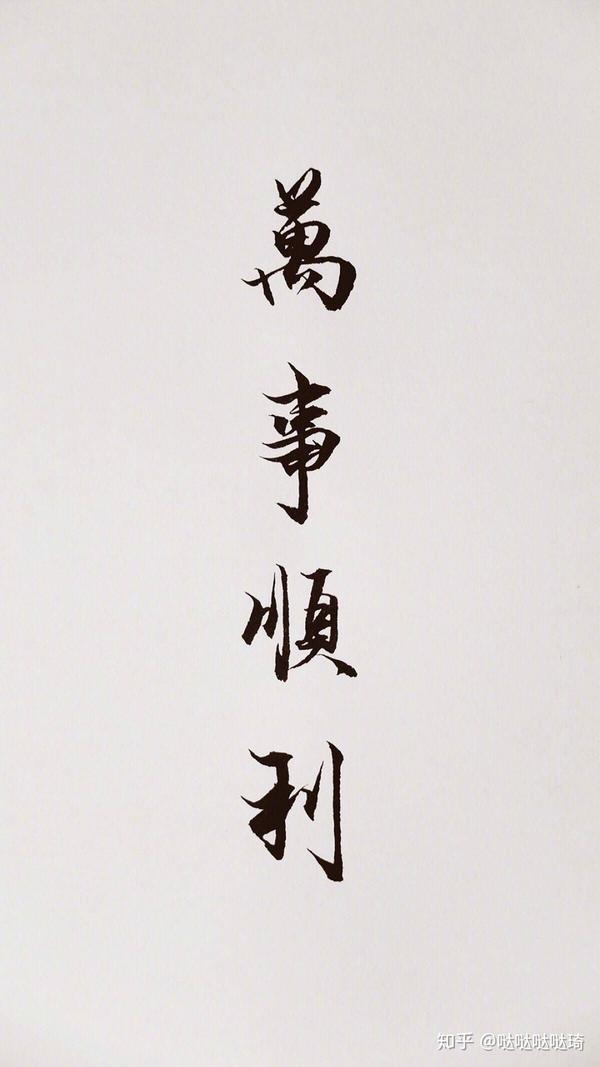 萬事順利
知乎 @哒哒哒哒琦